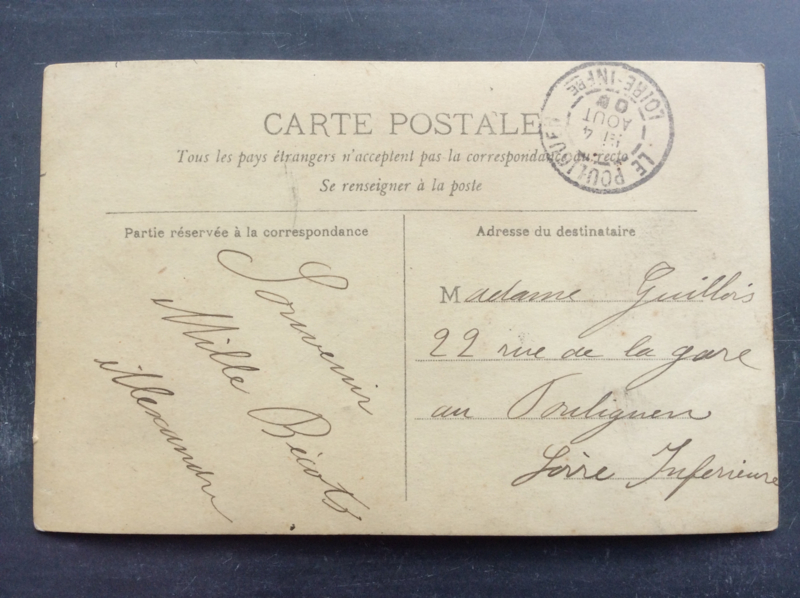 CARTE POSTALE
Tous les pays étrangers n'acceptent pas la correspondance au recto
Se renseigner à la poste
LE POULIGUEN
LOIRE-INFRE
4
AOUT
Partie réservée à la correspondance
Souvenir
Mille Bécots
Alexandre
Adresse du destinataire
Madame Guillois
22 rue de la gare
au Pouliguen
Loire Inferieure